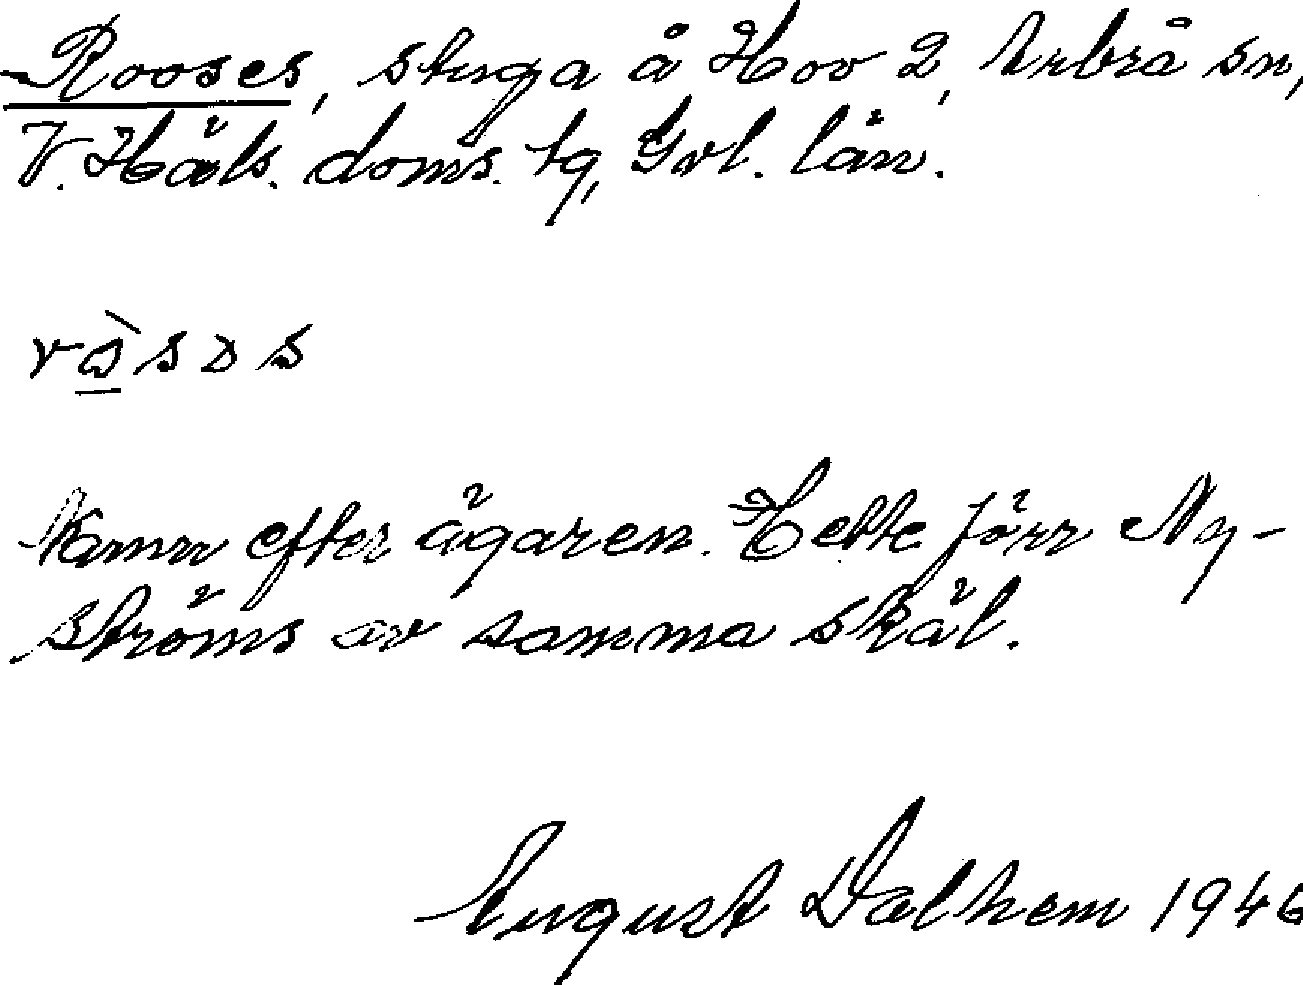 Rooses, stuga å Hov 2, Arbrå sn,
V. Häls. doms. tg, Gvl. län.
Namn efter ägaren. Hette förr Ny-
ströms av samma skäl.
August Dalhem 1946